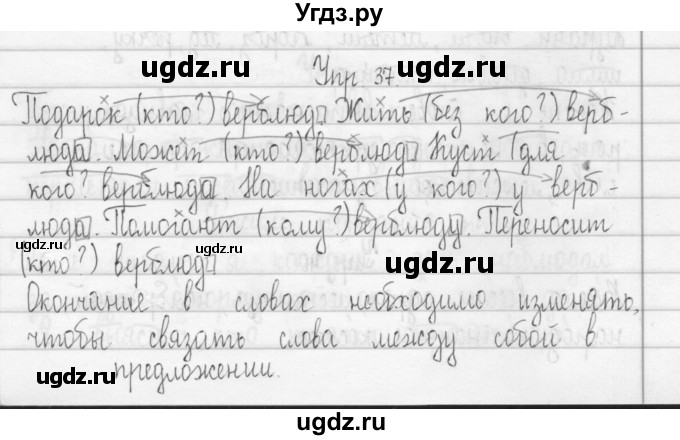 Угдз.ру
ugdz.ru ugdz.ru
Упр 37.
Подарок (кто?) верблюд. Жить (без кого?) верб-
люда. Может (кто?) верблюд. Куст (для
кого? верблюда. На ногах (у кого?) у верб-
люда. Помогают (кому?) верблюду. Переносит
ugdz.ru ugdz.ru ugdz.ru
(кто?) верблюд
Окончание в словах необходимо изменять,
чтобы связать слова между собой в
предложении.
ugdz.ru ugdz.ru
ugdz.ru